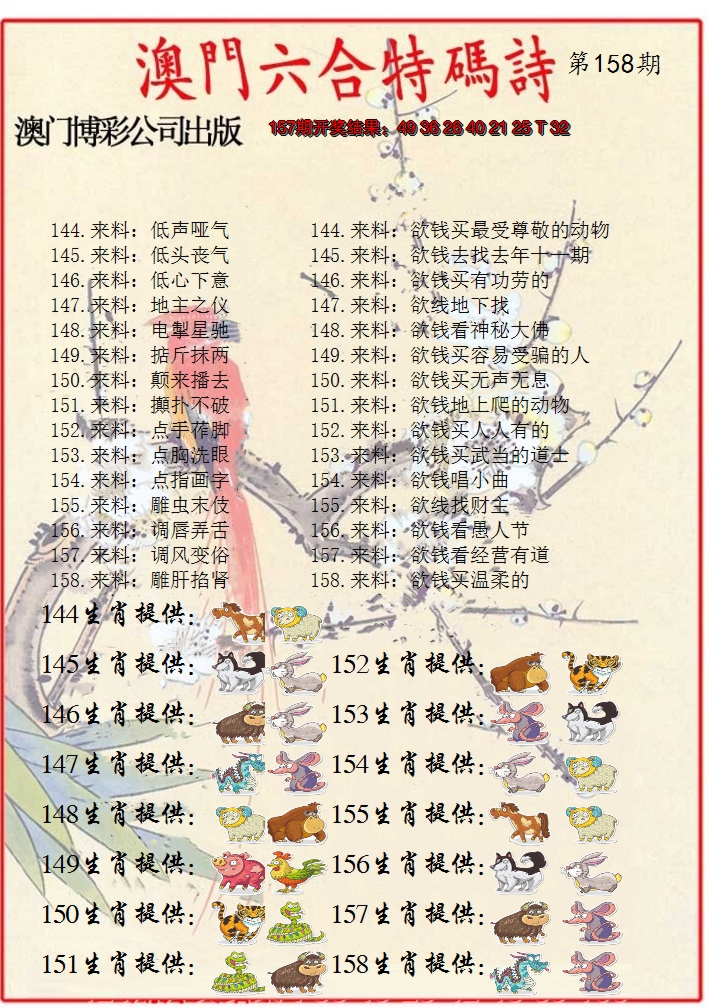 澳門六合特碼詩 第158期
澳门博彩公司出版 157期开奖结果：49 36 26 40 21 25 T 32
144.来料：低声哑气 144.来料：欲钱买最受尊敬的动物
145.来料：低头丧气 145.来料：欲钱去找去年十一期
146.来料：低心下意 146.来料：欲钱买有功劳的
147.来料：地主之仪 147.来料：欲线地下找
148.来料：电掣星驰 148.来料：欲钱看神秘大佛
149.来料：掂斤抹两 149.来料：欲钱买容易受骗的人
150.来料：颠来播去 150.来料：欲钱买无声无息
151.来料：攧扑不破 151.来料：欲钱地上爬的动物
152.来料：点手莋脚 152.来料：欲钱买人人有的
153.来料：点胸洗眼 153.来料：欲钱买武当的道士
154.来料：点指画字 154.来料：欲钱唱小曲
155.来料：雕虫末伎 155.来料：欲线找财主
156.来料：调唇弄舌 156.来料：欲钱看愚人节
157.来料：调风变俗 157.来料：欲钱看经营有道
158.来料：雕肝掐肾 158.来料：欲钱买温柔的
144生肖提供：
145生肖提供： 152生肖提供：
146生肖提供： 153生肖提供：
147生肖提供： 154生肖提供：
148生肖提供： 155生肖提供：
149生肖提供： 156生肖提供：
150生肖提供： 157生肖提供：
151生肖提供： 158生肖提供：